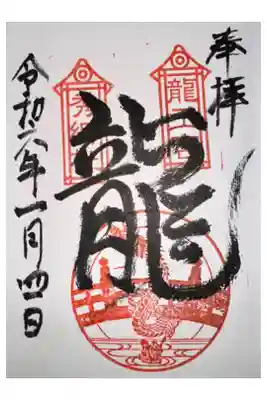 奉拝
龍
令和六年一月四日